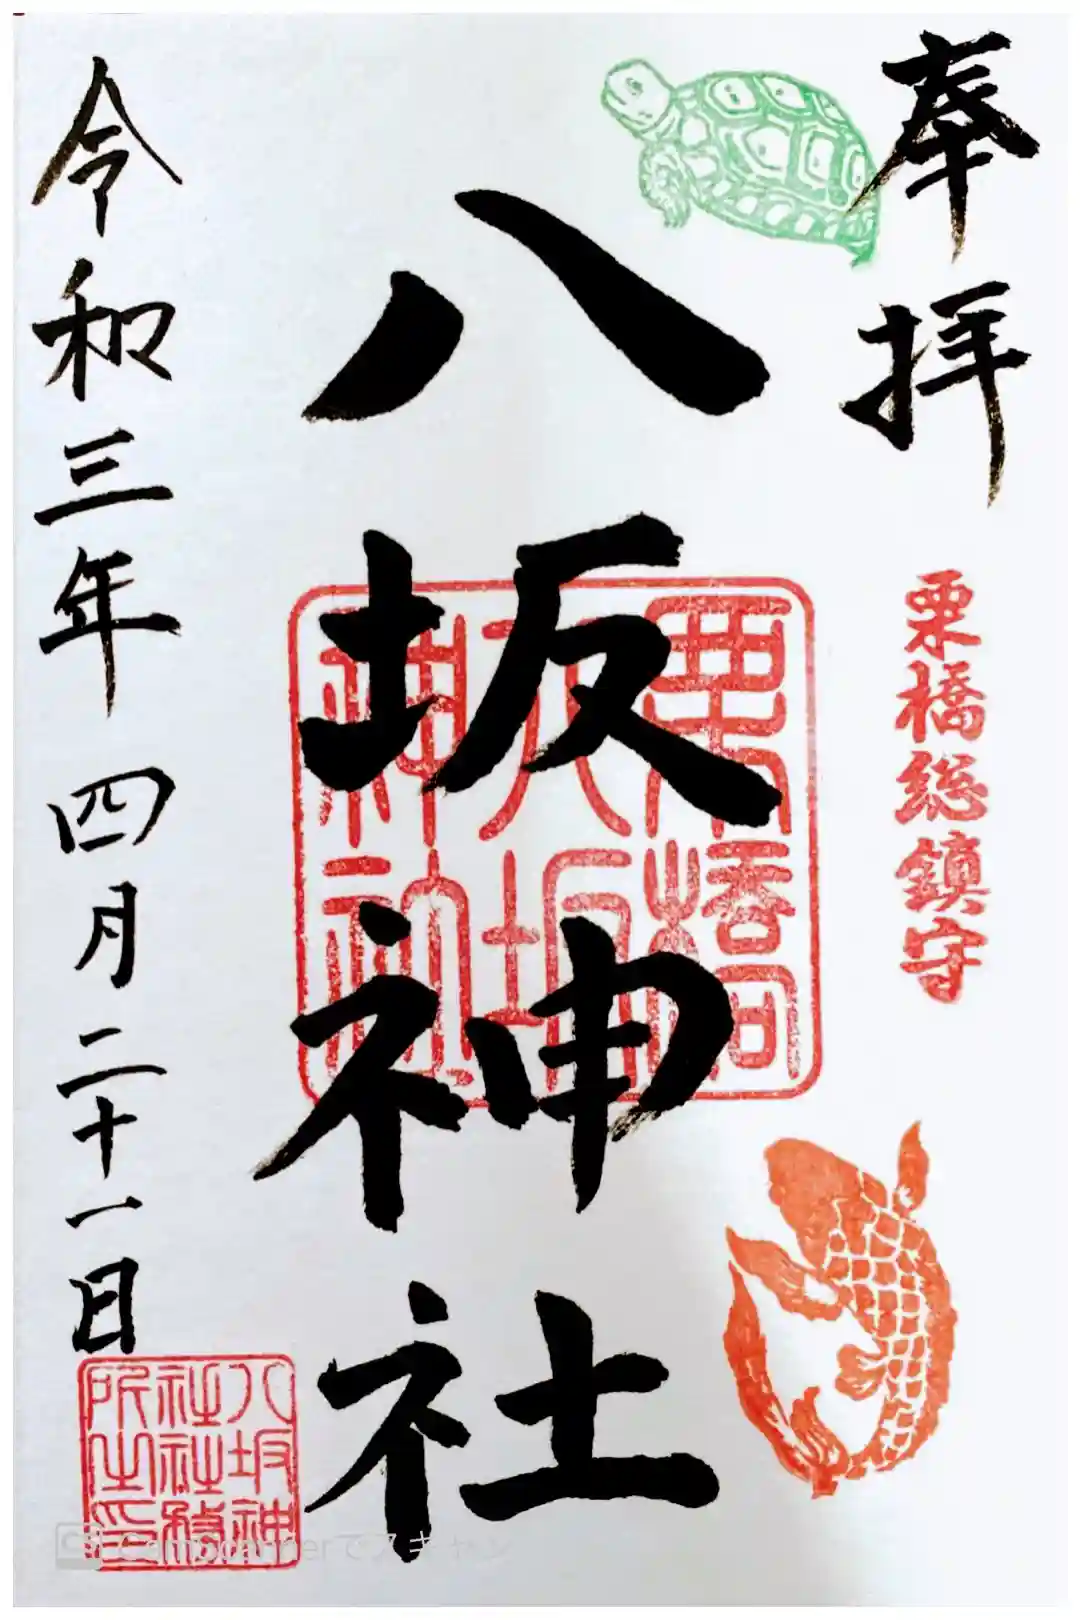 奉拝
栗橋総鎮守
八坂神社
栗橋
八坂
神社
令和三年 四月二十一日
八坂神
社社務
所之印
CamScannerでスキャン